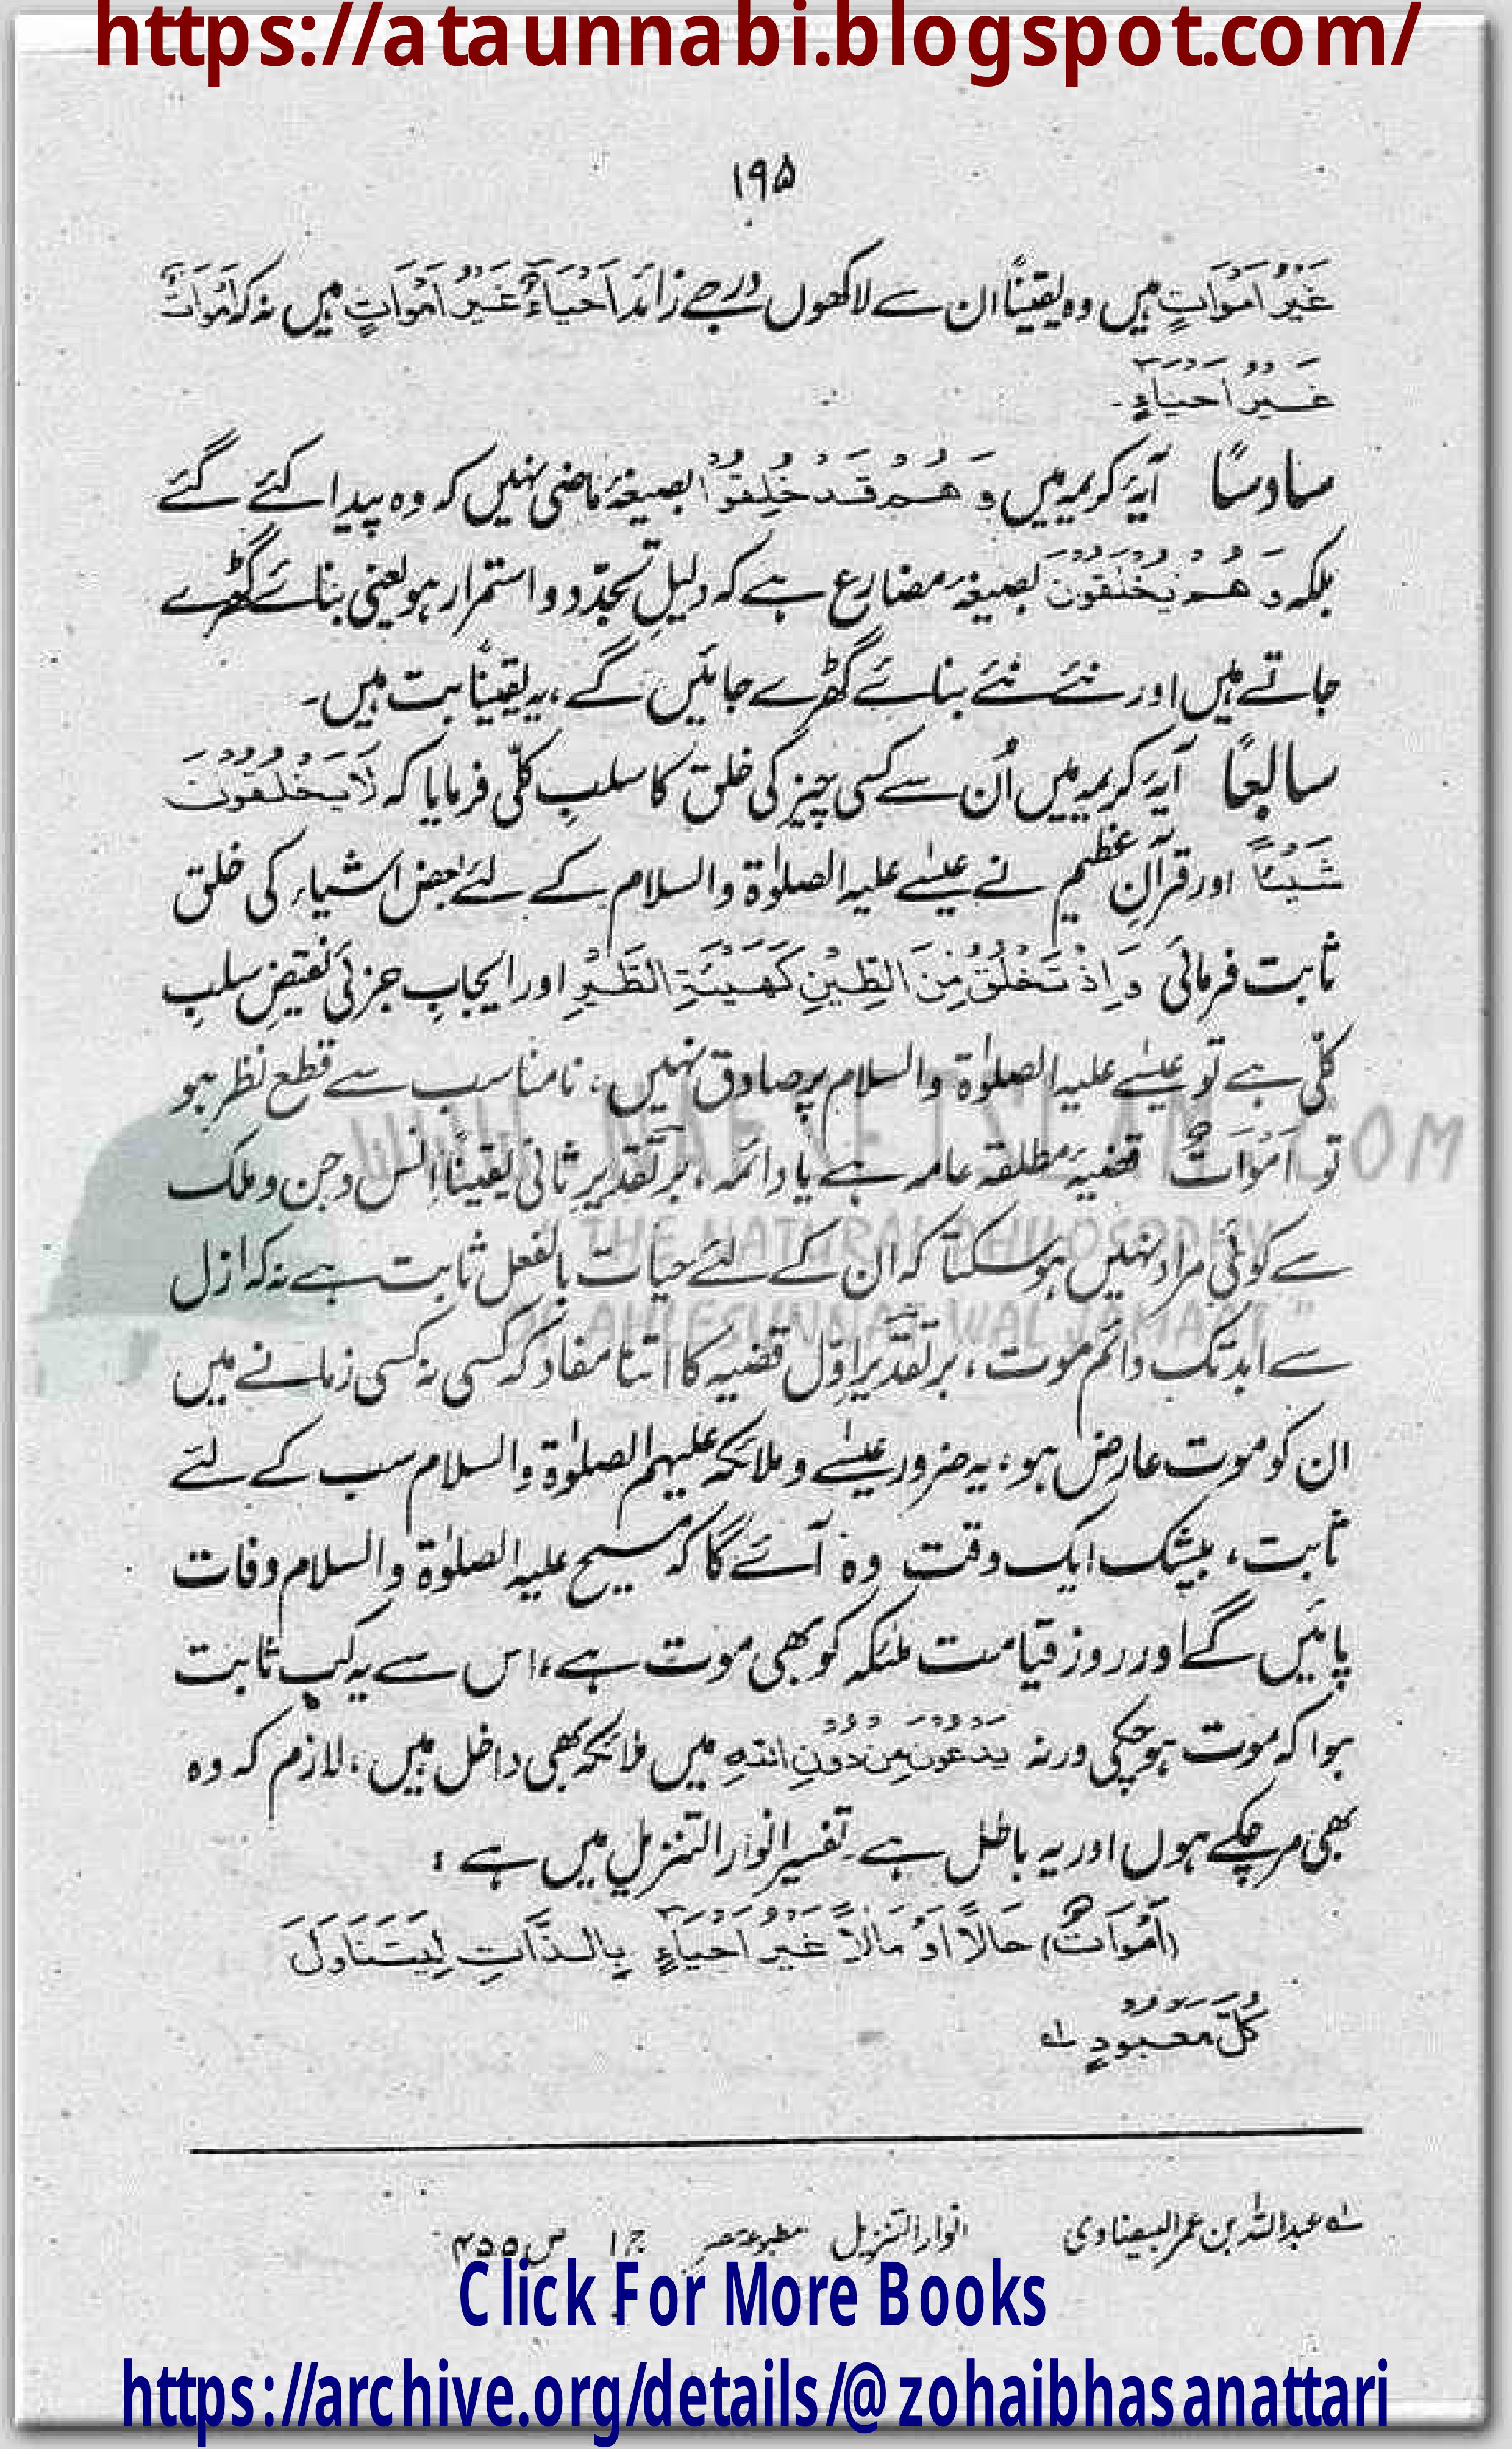 https://ataunnabi.blogspot.com/
۱۹۵
غَیْرُ اَمْوَاتٍ ہیں وہ یقیناً ان سے لاکھوں درجے زائد اَحْیَاءٌ غَیْرُ اَمْوَاتٍ ہیں نہ کہ اَمْوَاتٌ
غَیْرُ اَحْیَآءٍ۔
سادسًا آیۂ کریمہ میں وَ ھُمْ قَدْ خُلِقُوْا بصیغۂ ماضی نہیں کہ وہ پیدا کئے گئے
بلکہ وَ ھُمْ یُخْلَقُوْنَ بصیغۂ مضارع ہے کہ دلیلِ تجدّد و استمرار ہو یعنی بنائے گھڑے
جاتے ہیں اور نئے نئے بنائے گھڑے جائیں گے، یہ یقیناً بت ہیں۔
سابعًا آیۂ کریمہ میں اُن سے کسی چیز کی خلق کا سلبِ کلّی فرمایا کہ لَا یَخْلُقُوْنَ
شَیْئًا اور قرآنِ عظیم نے عیسٰے علیہ الصلوٰۃ والسلام کے لئے بعض اشیاء کی خلق
ثابت فرمائی وَ اِذْ تَخْلُقُ مِنَ الطِّیْنِ کَھَیْئَۃِ الطَّیْرِ اور ایجاب جزئی نقیضِ سلبِ
کلّی ہے تو عیسٰے علیہ الصلوٰۃ والسلام پر صادق نہیں، نامناسب سے قطع نظر ہو
تو اَمْوَاتٌ قضیۂ مطلقہ عامہ ہے یا دائمہ، برتقدیرِ ثانی یقیناً انس و جن و ملک
سے کوئی مراد نہیں ہو سکتا کہ ان کے لئے حیات بالفعل ثابت ہے نہ کہ ازل
سے ابد تک دائم موت، برتقدیرِ اوّل قضیہ کا اتنا مفاد کہ کسی نہ کسی زمانے میں
ان کو موت عارض ہو، یہ ضرور عیسٰے و ملائکہ علیہم الصلوٰۃ والسلام سب کے لئے
ثابت، بیشک ایک وقت وہ آئے گا کہ مسیح علیہ الصلوٰۃ والسلام وفات
پائیں گے اور روز قیامت ملئکہ کو بھی موت ہے، اس سے یہ کب ثابت
ہوا کہ موت ہو چکی ورنہ یَدْعُوْنَ مِنْ دُوْنِ اللّٰہِ میں ملائکہ بھی داخل ہیں، لازم کہ وہ
بھی مر چکے ہوں اور یہ باطل ہے۔ تفسیر انوار التنزیل میں ہے :
(اَمْوَاتٌ) حَالًا اَوْ مَالًا غَیْرُ اَحْیَآءٍ بِالذَّاتِ لِیَتَنَاوَلَ
کُلَّ مَعْبُوْدٍ لہ
لہ عبداللہ بن عمر البیضاوی انوار التنزیل مطبوعہ مصر ج ۱ ص ۴۵۵
WWW.NAFSEISLAM.COM
"THE NATURAL PHILOSOPHY
OF AHLESUNNAT WAL JAMAAT"
Click For More Books
https://archive.org/details/@zohaibhasanattari